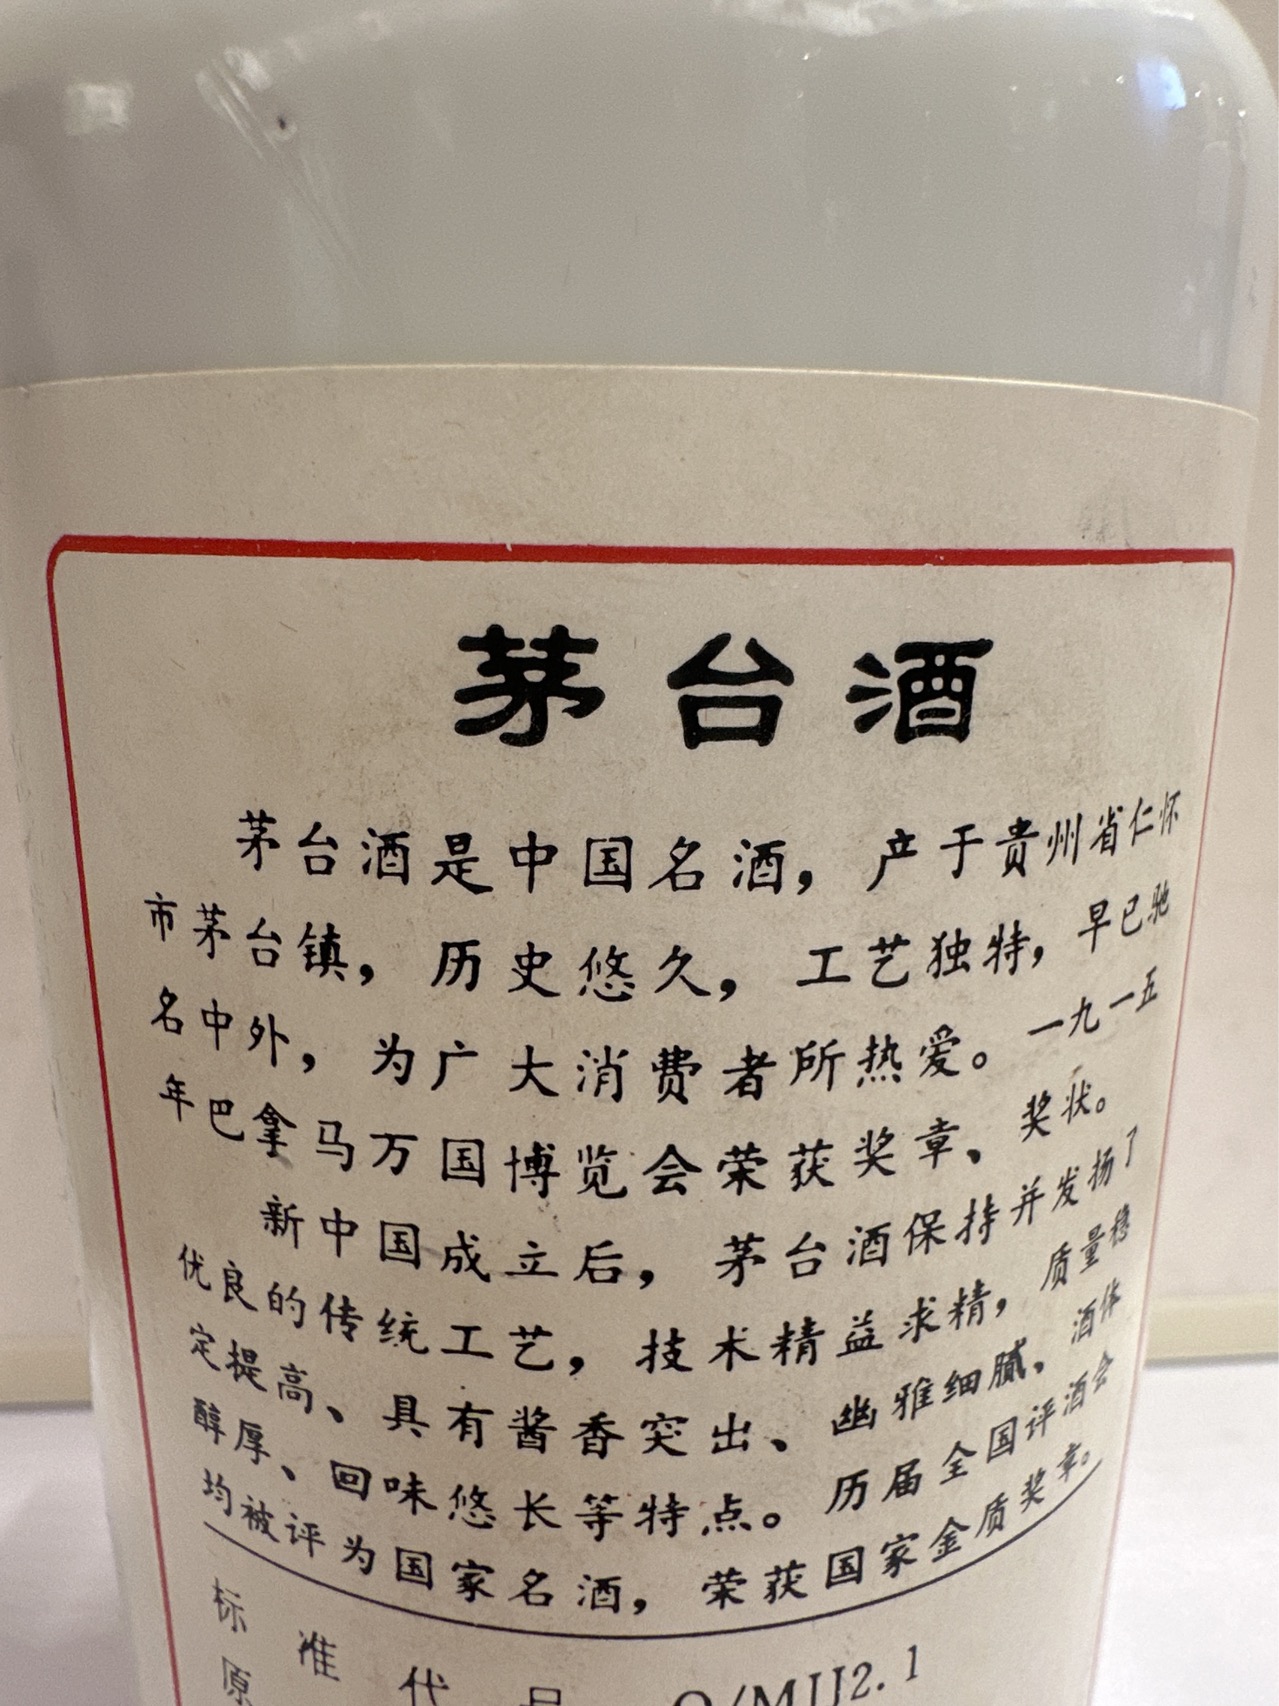 茅台酒
茅台酒是中国名酒，产于贵州省仁怀
市茅台镇，历史悠久，工艺独特，早已驰
名中外，为广大消费者所热爱。一九一五
年巴拿马万国博览会荣获奖章、奖状。
新中国成立后，茅台酒保持并发扬了
优良的传统工艺，技术精益求精，质量稳
定提高、具有酱香突出、幽雅细腻、酒体
醇厚、回味悠长等特点。历届全国评酒会
均被评为国家名酒，荣获国家金质奖章。
标准代号 Q/MJJ2.1
原